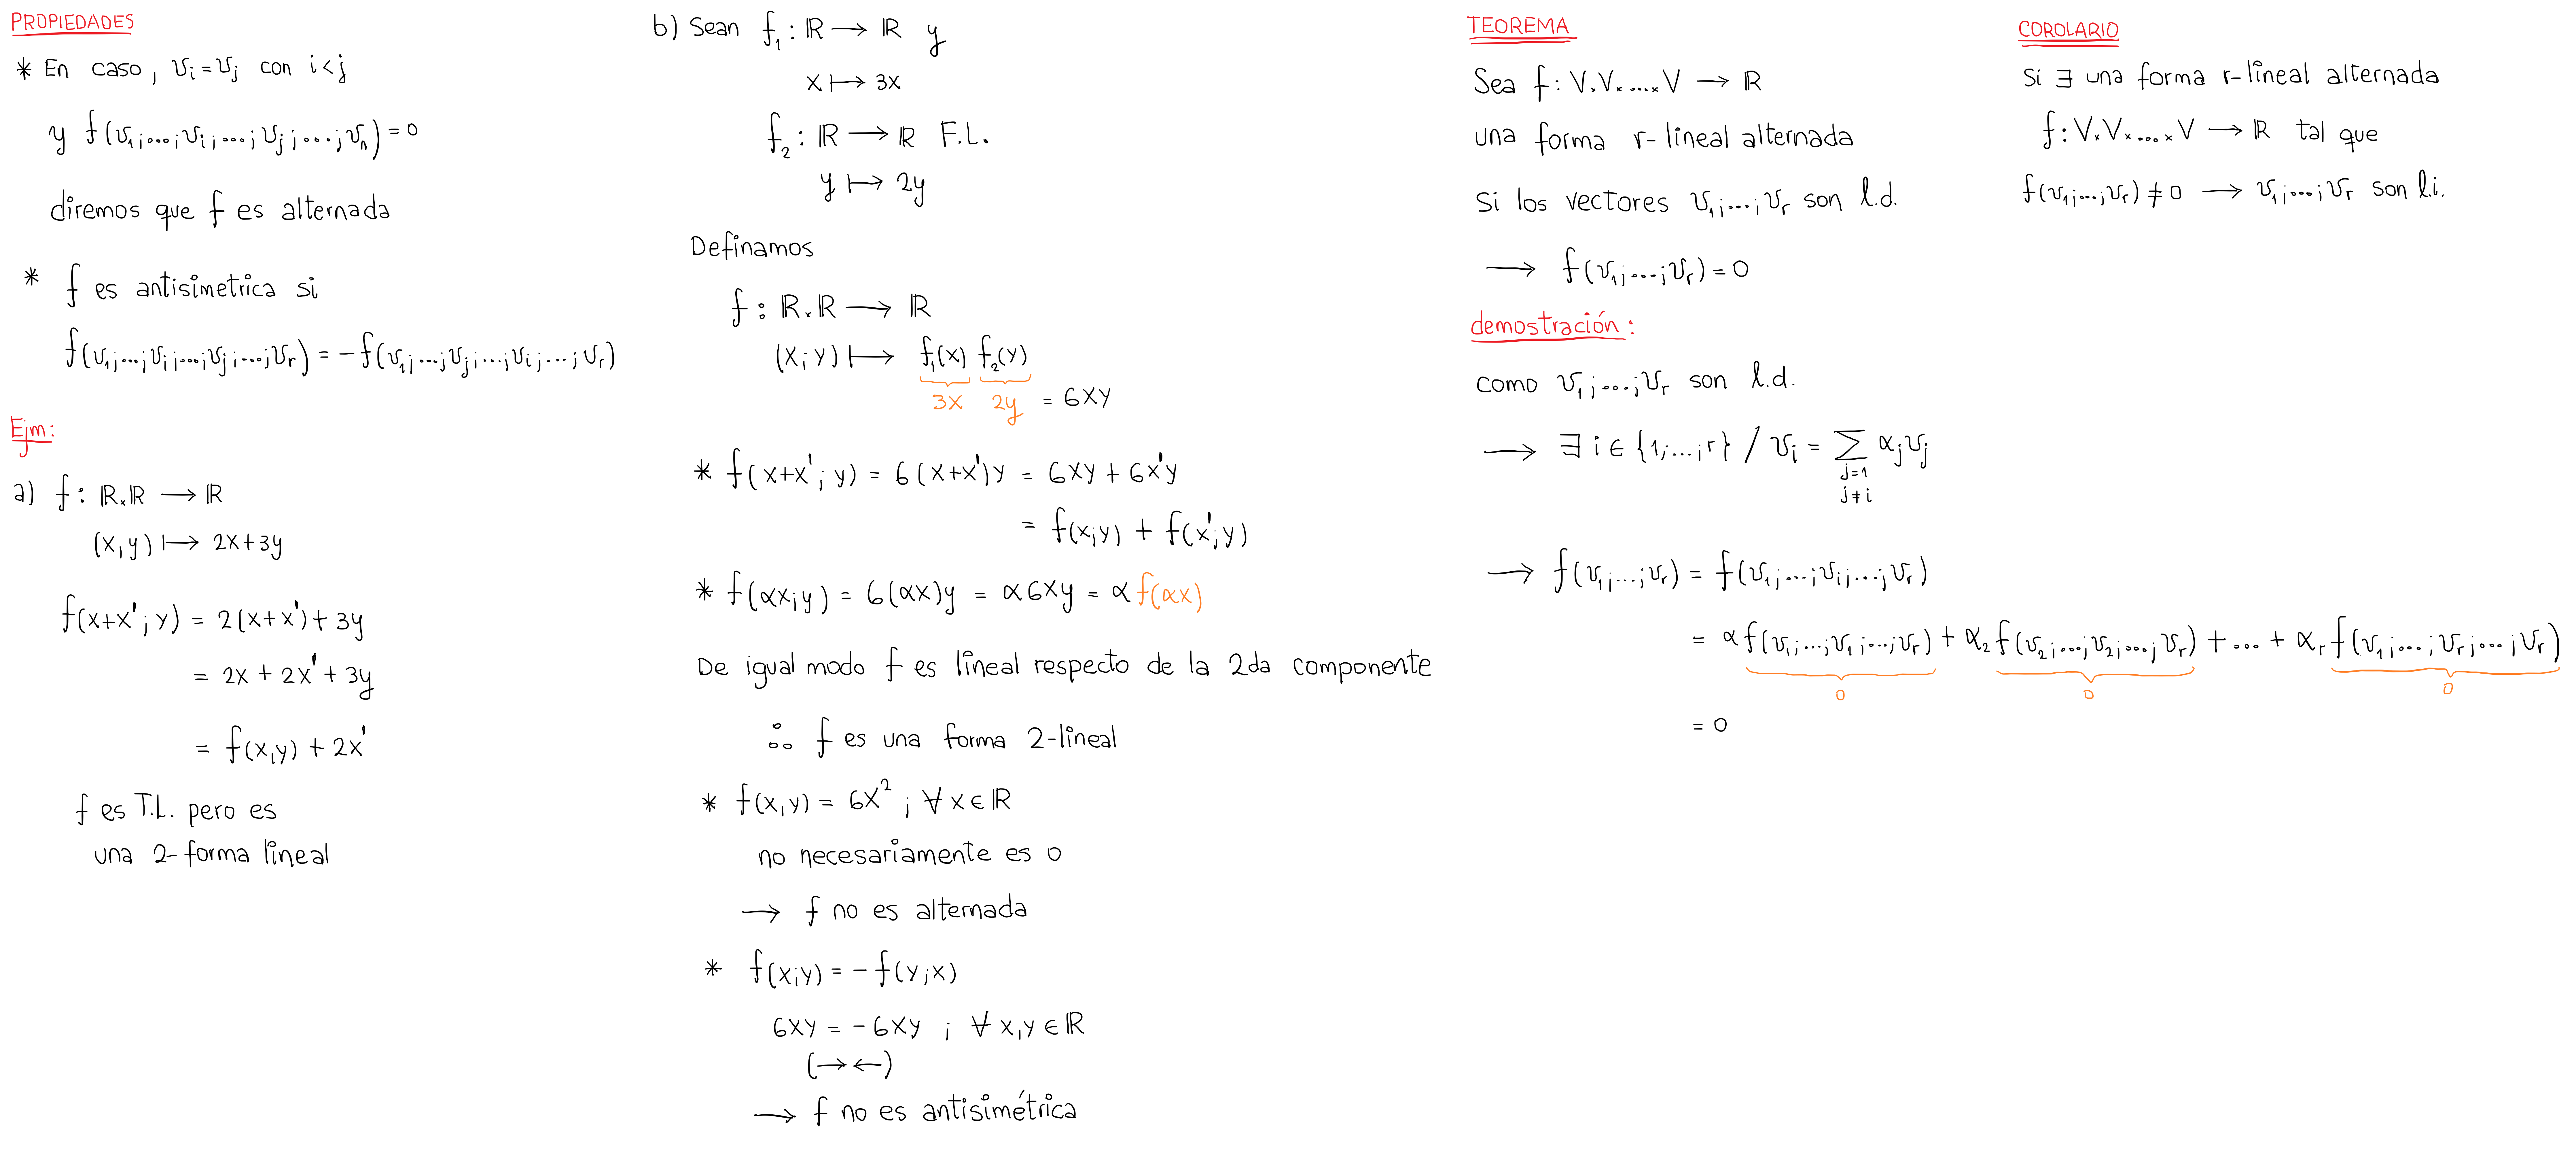 PROPIEDADES
* En caso, v_i = v_j con i<j
y f(v_1;...;v_i;...;v_j;...;v_n) = 0
diremos que f es alternada
* f es antisimetrica si
f(v_1;...;v_i;...;v_j;...;v_r) = -f(v_1;...;v_j;...;v_i;...;v_r)
Ejm:
a) f: ℝ×ℝ → ℝ
(x,y) ↦ 2x+3y
f(x+x';y) = 2(x+x')+3y
= 2x + 2x' + 3y
= f(x,y) + 2x'
f es T.L. pero es
una 2-forma lineal
b) Sean f_1: ℝ → ℝ y
x ↦ 3x
f_2: ℝ → ℝ F.L.
y ↦ 2y
Definamos
f: ℝ×ℝ → ℝ
(x;y) ↦ f_1(x) f_2(y)
3x 2y = 6xy
* f(x+x';y) = 6(x+x')y = 6xy + 6x'y
= f(x;y) + f(x';y)
* f(αx;y) = 6(αx)y = α6xy = α f(αx)
De igual modo f es lineal respecto de la 2da componente
∴ f es una forma 2-lineal
* f(x,y) = 6x² ; ∀ x ∈ ℝ
no necesariamente es 0
→ f no es alternada
* f(x;y) = -f(y;x)
6xy = -6xy ; ∀ x,y ∈ ℝ
(→←)
→ f no es antisimétrica
TEOREMA
Sea f: V×V×...×V → ℝ
una forma r-lineal alternada
Si los vectores v_1;...;v_r son l.d.
→ f(v_1;...;v_r) = 0
demostración:
como v_1;...;v_r son l.d.
→ ∃ i ∈ {1;...;r} / v_i = ∑ α_j v_j
j=1
j≠i
→ f(v_1;...;v_r) = f(v_1;...;v_i;...;v_r)
= α f(v_1;...;v_1;...;v_r) + α_2 f(v_2;...;v_2;...;v_r) + ... + α_r f(v_1;...;v_r;...;v_r)
0 0 0
= 0
COROLARIO
Si ∃ una forma r-lineal alternada
f: V×V×...×V → ℝ tal que
f(v_1;...;v_r) ≠ 0 → v_1;...;v_r son l.i.